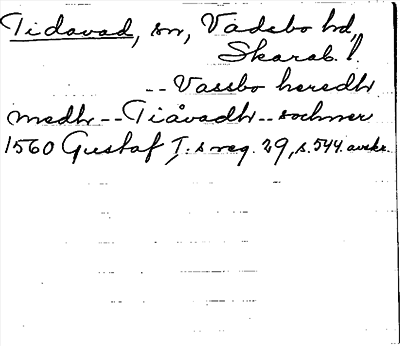 Tidavad, sn, Vadsbo hd,
Skarab. l.
-- Vassbo heredh
medh -- Tiåvadh -- sochner
1560 Gustaf I:s reg. 29, s. 544. avskr.